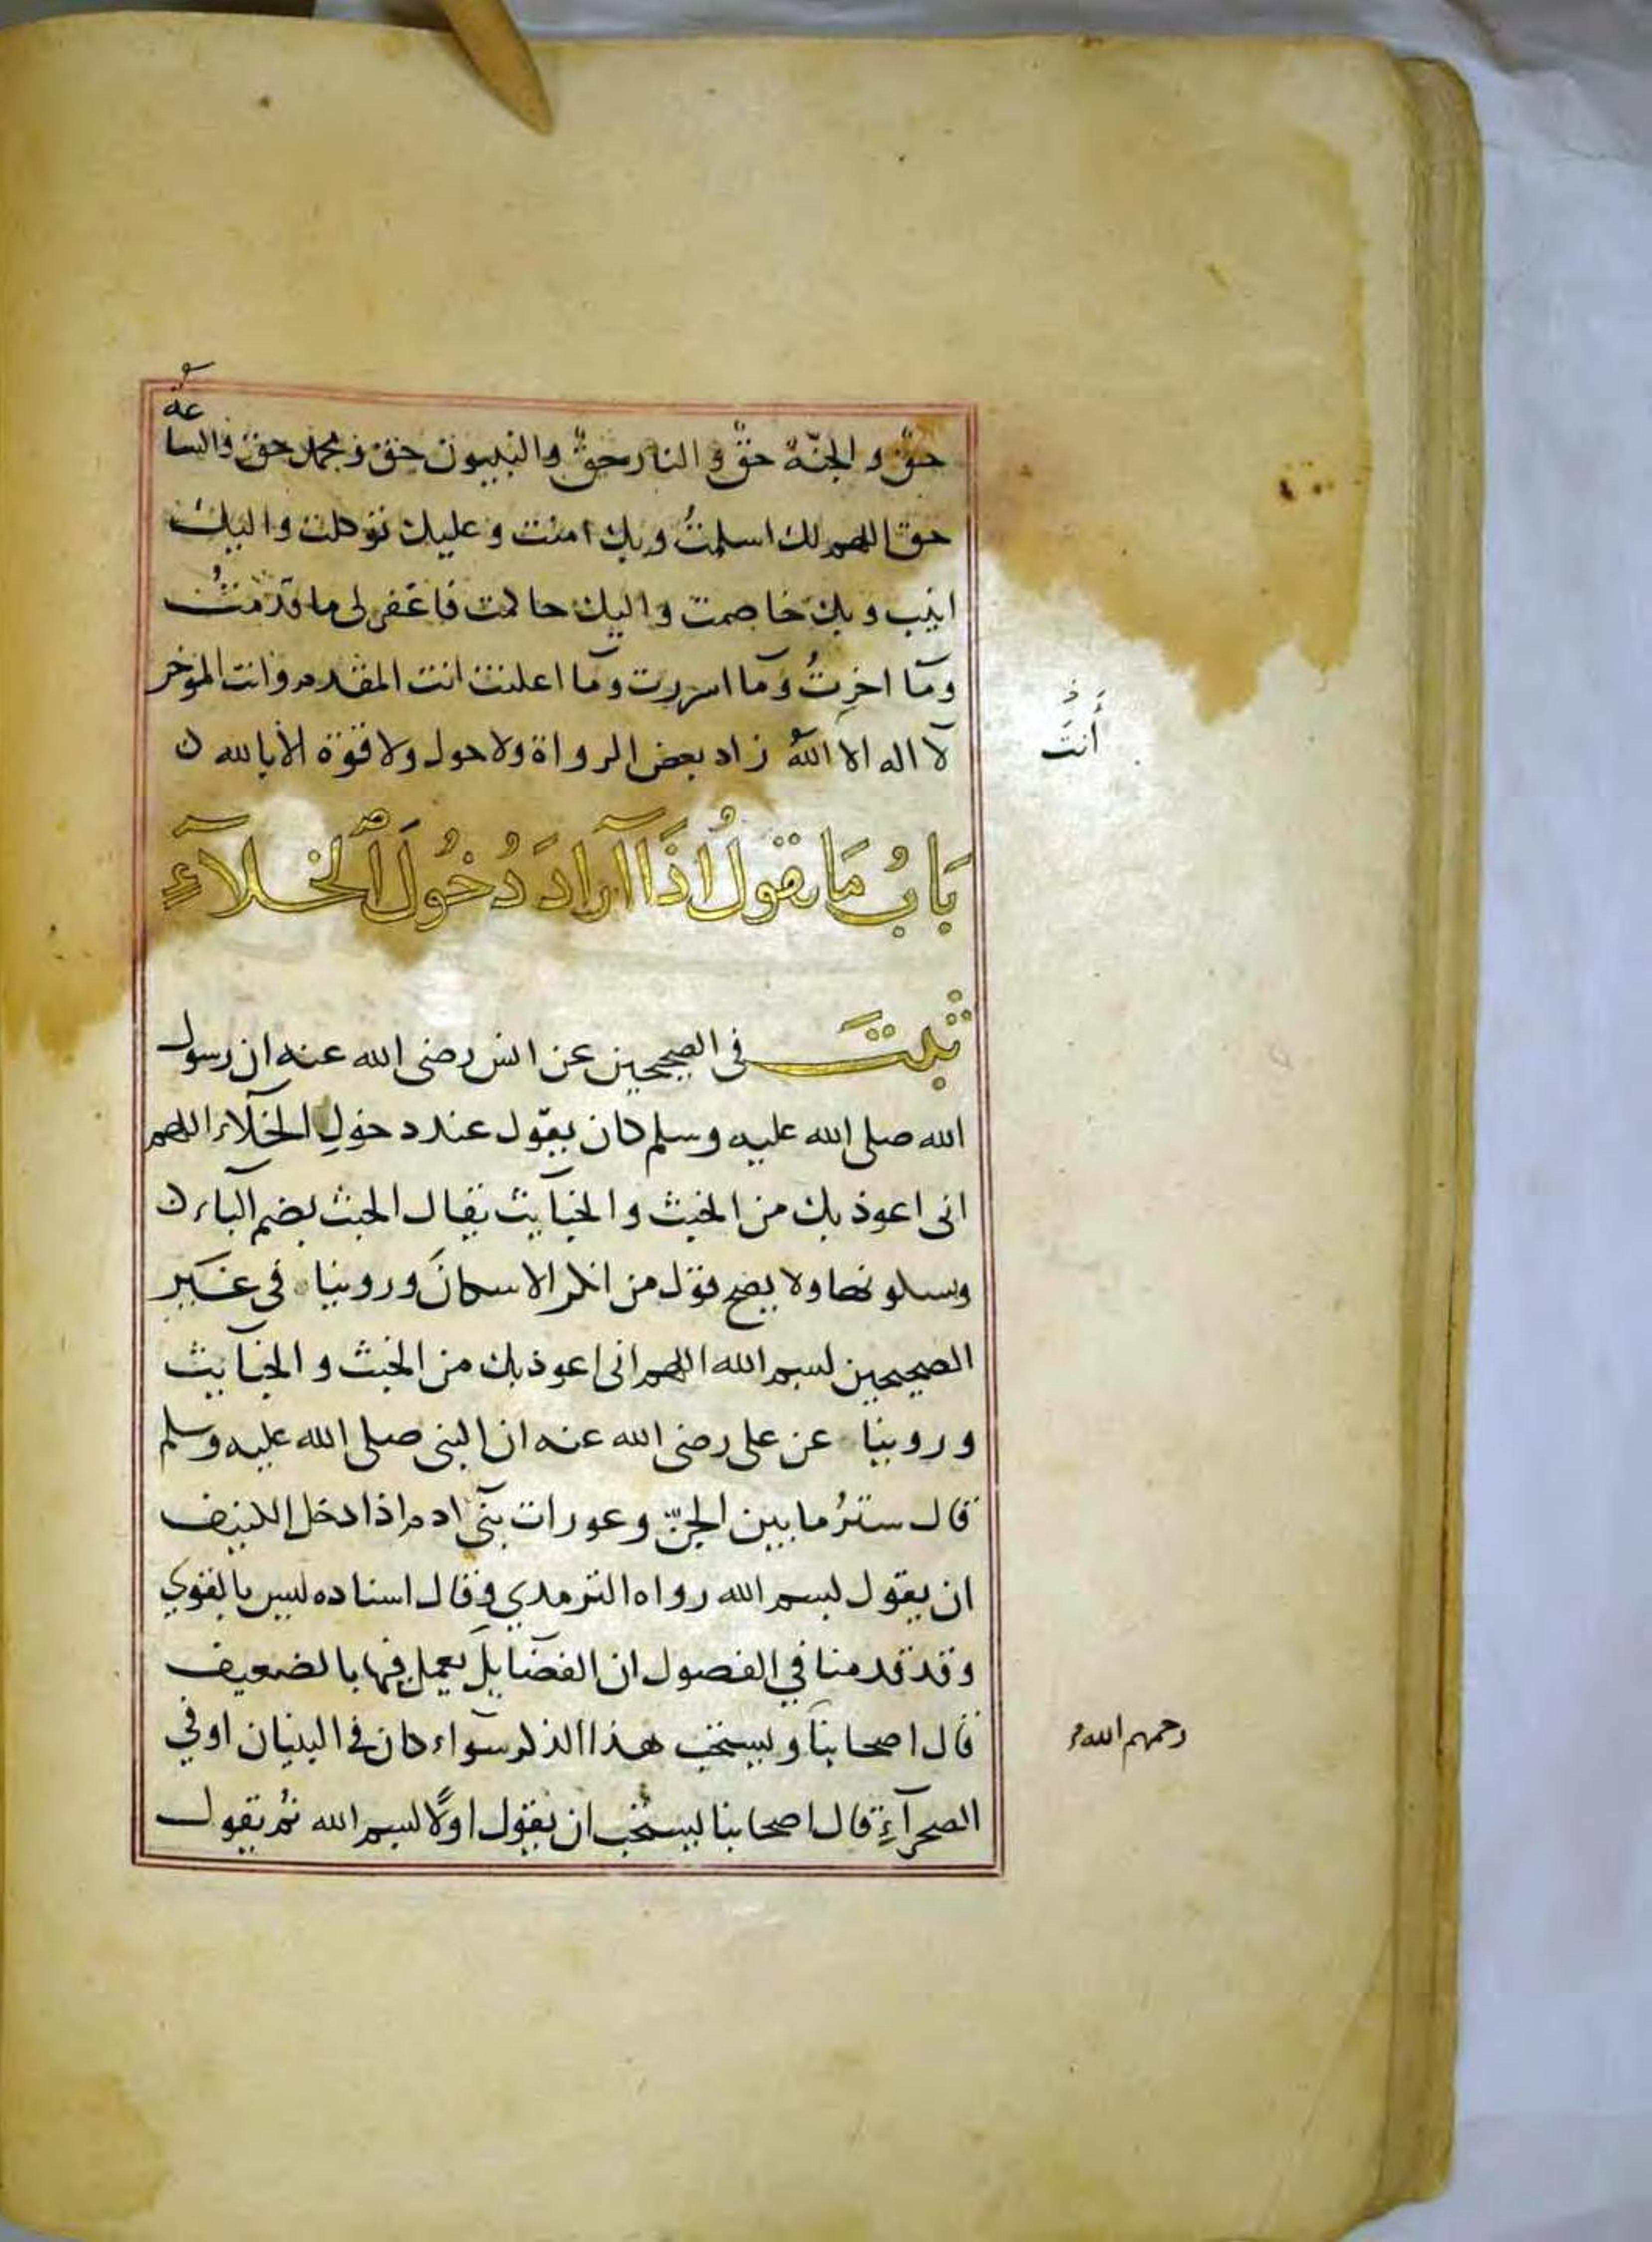 حقٌ و الجنّة حقٌ و النار حقٌ والنبيون حق و محمد حق والساعة
حق اللهم لك اسلمتُ وبك امنت و عليك توكلت واليك
انيب و بك خاصمت واليك حاكمت فاغفر لى ما قدمتُ
ومَا اخرتُ ومَا اسررت ومَا اعلنت انت المقدم وانت المؤخر
لآ اله الا اللهُ زاد بعض الرواة ولا حول ولا قوة الا بالله
أَنتَ
بَابُ مَا يقولُ اذَا آرادَ دُخُولَ ٱلخلآءِ
ثبتَ فى الصحيحين عن انس رضى الله عنه ان رسول
الله صلى الله عليه وسلم كان يقول عند دخولِ الخلآء اللهم
انى اعوذ بك من الخبث و الخبآيث يقال الخبث بضم البآء
وسكونها ولا يصح قول من انكر الاسكان وروينا فى غير
الصحيحين بسم الله اللهم انى اعوذ بك من الخبث و الخبآيث
و روينا عن على رضى الله عنه ان النبى صلى الله عليه وسلم
قال سترُ ما بين الجنّ وعورات بنى ادم اذا دخل الكنيف
ان يقول بسم الله رواه الترمذي وقال اسناده ليس بالقوي
وقد قدمنا في الفصول ان الفضآيل يعمل فيها بالضعيف
قال اصحابنا ويستحب هذا الذكر سوآء كان في البنيان اوفي
رحمهم الله
الصحرآءِ قال اصحابنا يستحب ان يقول اولًا بسم الله ثم يقول